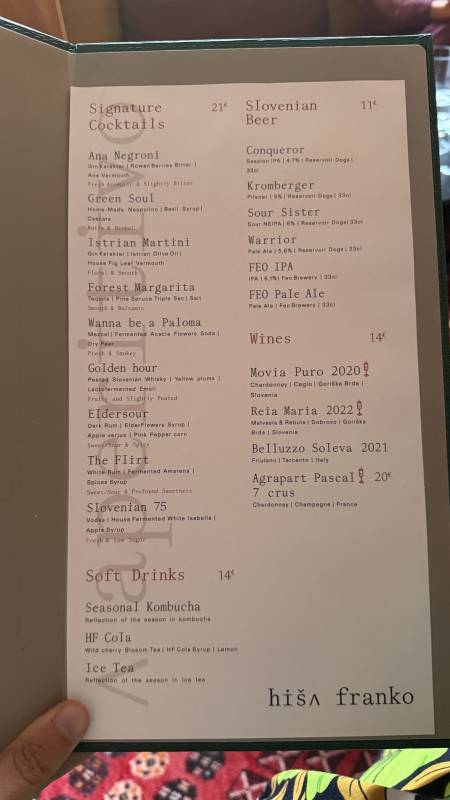 Signature 21€
Cocktails
Ana Negroni
Gin Karakter | Rowan Berries Bitter |
Ana Vermouth
Fresh Aromatic & Slightly Bitter
Green Soul
Home-Made Nespolino | Basil Syrup |
Cascara
Nutty & Herbal
Istrian Martini
Gin Karakter | Istrian Olive Oil |
House Fig Leaf Vermouth
Floral & Smooth
Forest Margarita
Tequila | Pine Spruce Triple Sec | Salt
Smooth & Balsamic
Wanna be a Paloma
Mezcal | Fermented Acacia Flowers Soda |
Dry Pear
Fresh & Smokey
Golden hour
Peated Slovenian Whisky | Yellow plums |
Lactofermented Emoli
Fruity and Slightly Peated
Eldersour
Dark Rum | ElderFlowers Syrup |
Apple verjus | Pink Pepper corn
Sweet/Sour & Spicy
The Flirt
White Rum | Fermented Amarena |
Spices Syrup
Sweet/Sour & Profound Sweetness
Slovenian 75
Vodka | House Fermented White Isabella |
Apple Syrup
Fresh & Low Sugar
Soft Drinks 14€
Seasonal Kombucha
Reflection of the season in kombucha
HF Cola
Wild cherry Blosom Tea | HF Cola Syrup | Lemon
Ice Tea
Reflection of the season in ice tea
Slovenian 11€
Beer
Conqueror
Session IPA | 4,7% | Reservoir Dogs |
33cl
Kromberger
Pilsner | 5% | Reservoir Dogs | 33cl
Sour Sister
Sour NEIPA | 6% | Reservoir Dogs | 33cl
Warrior
Pale Ale | 5,6% | Reservoir Dogs | 33cl
FEO IPA
IPA | 6,1% | Feo Brewery | 33cl
FEO Pale Ale
Pale Ale | Feo Brewery | 33cl
Wines 14€
Movia Puro 2020
Chardonnay | Ceglo | Goriška Brda |
Slovenia
Reia Maria 2022
Malvasia & Rebula | Dobrovo | Goriška
Brda | Slovenia
Belluzzo Soleva 2021
Friulano | Tarcento | Italy
Agrapart Pascal 20€
7 crus
Chardonnay | Champagne | France
hišʌ franko
ʌ aperitivo